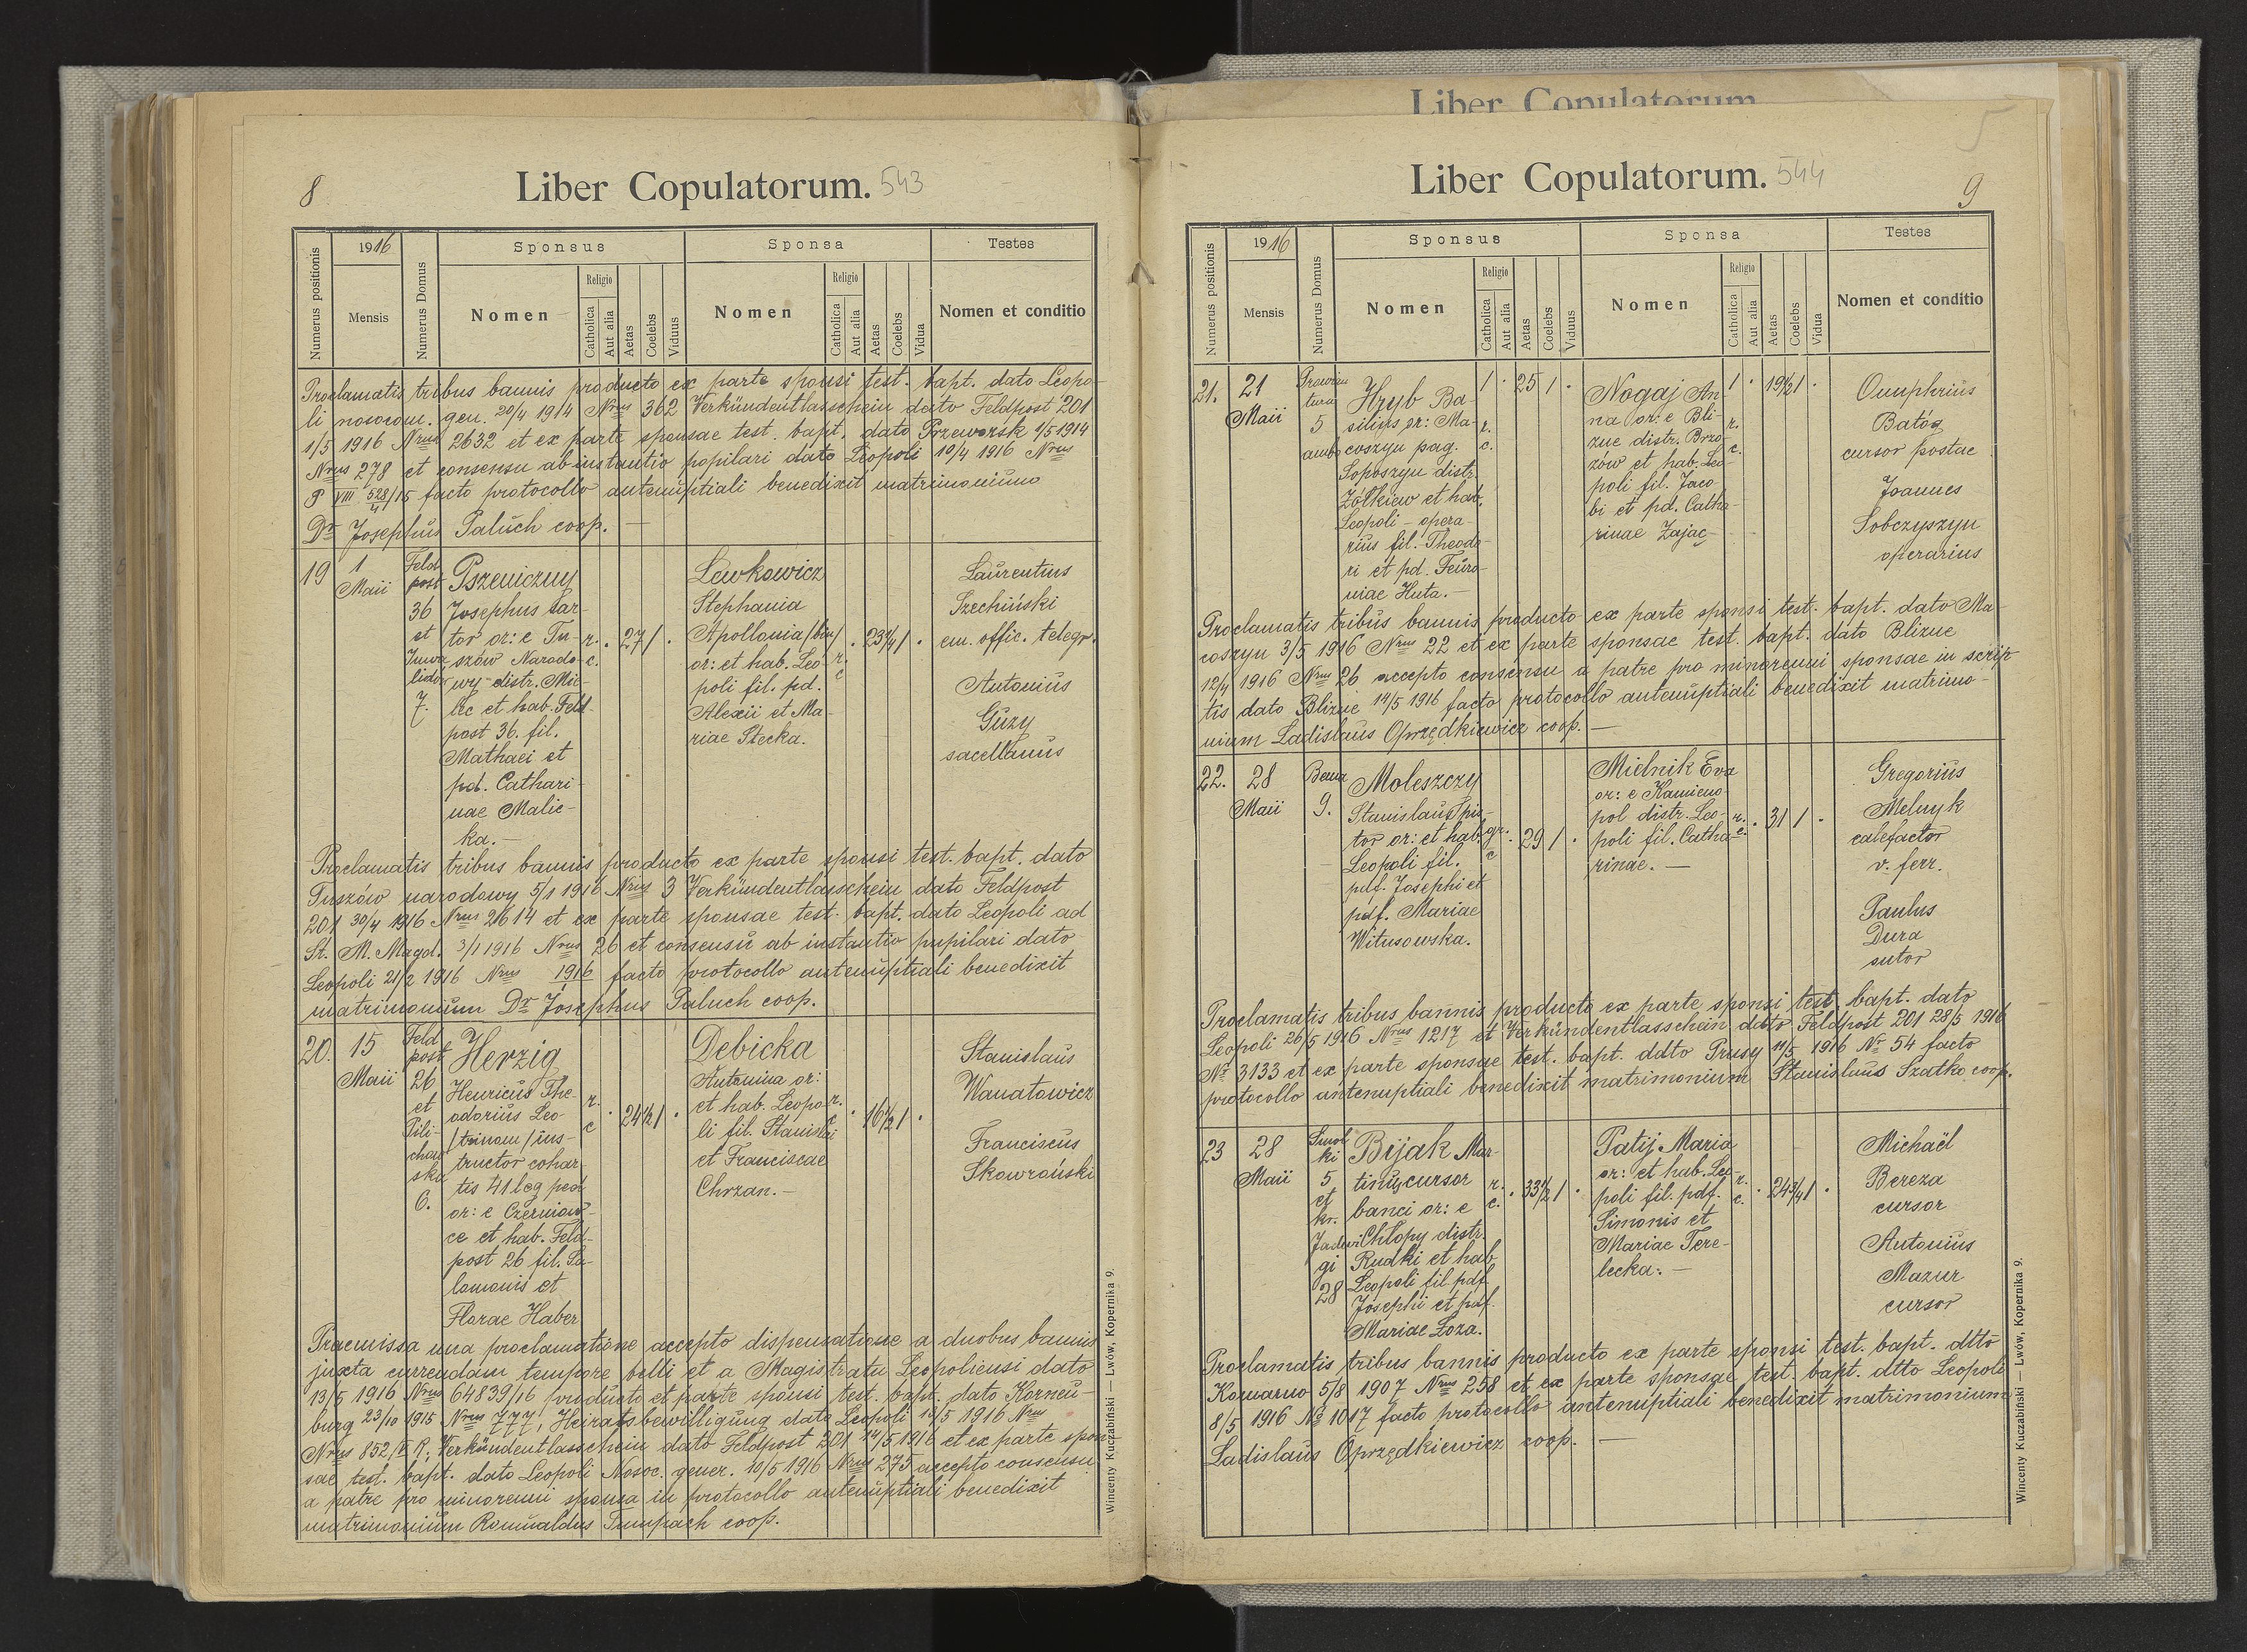 8
Liber Copulatorum. 543
Numerus positionis
1916
Mensis
Numerus Domus
Sponsus
Nomen
Religio
Catholica
Aut alia
Aetas
Coelebs
Viduus
Sponsa
Nomen
Religio
Catholica
Aut alia
Aetas
Coelebs
Vidua
Testes
Nomen et conditio
Proclamatis tribus bannis producto ex parte sponsi test. bapt. dato Leopo-
li nosocom. gen. 20/4 1914 Nrus 362 Verkündentlasschein dato Feldpost 201
1/5 1916 Nrus 2632 et ex parte sponsae test. bapt. dato Przeworsk 1/5 1914
Nrus 278 et consensu ab instantio popilari dato Leopoli 10/4 1916 Nrus
P VIII 528/15 facto protocollo antenuptiali benedixit matrimonium
4
Dr Josephus Paluch coop. —
19
1
Maii
Feld
post
36
et
Inwa
lidów
7.
Pszeniczny
Josephus sar-
tor or: e Tu-
szów Narodo-
wy distr. Mie-
lec et hab. Feld-
post 36. fil.
Mathaei et
pd. Cathari-
nae Malic-
ka. —
r.
c.
27 1
Lewkowicz
Stephania
Apollonia /bin/
or: et hab. Leo-
poli fil. pd.
Alexii et Ma-
riae Stecka.
r.
c
23 1/4 1
Laurentius
Szechiński
em. offic. telegr.
Antonius
Guzy
sacellanus
Proclamatis tribus bannis producto ex parte sponsi test. bapt. dato
Tuszów narodowy 5/1 1916 Nrus 3 Verkündentlasschein dato Feldpost
201 30/4 1916 Nrus 2614 et ex parte sponsae test. bapt. dato Leopoli ad
St. M. Magd. 3/1 1916 Nrus 26 et consensu ab instantio pupilari dato
Leopoli 21/2 1916 Nrus 1916 facto protocollo antenuptiali benedixit
matrimonium Dr Josephus Paluch coop.
20.
15
Maii
Feld
post
26
et
Pili-
chow
ska
6.
Herzig
Henricus The-
odorius Leo-
/trinom/ ins-
tructor cohar-
tis 41 leg ped
or: e Czerniow-
ce et hab. Feld-
post 26 fil. Sa-
lomonis et
Florae Haber
r.
c
24 1/2 1
Debicka
Antonina or:
et hab. Leopo-
li fil. Stanislai
et Franciscae
Chrzan. —
r.
c
16 1/2 1
Stanislaus
Wanatowicz
Franciscus
Skowroński
Praemissa una proclamatione accepto dispensatione a duobus bannis
juxta currendam tempore belli et a Magistratu Leopoliensi dato
13/5 1916 Nrus 64839/16 producto et parte sponsi test. bapt. dato Korneu-
burg 23/10 1915 Nrus 777, Heiratsbewilligung dato Leopoli 14/5 1916 Nrus
Nrus 852/V R. Verkündentlasschein dato Feldpost 201 14/5 1916 et ex parte spon-
sae test. bapt. dato Leopoli Nosoc. gener. 10/5 1916 Nrus 275 accepto consensu
a patre pro minorenni sponsa in protocollo antenuptiali benedixit
matrimonium Romualdus Tumpach coop.
Wincenty Kuczabiński — Lwów, Kopernika 9.
Liber Copulatorum
5
Liber Copulatorum. 544
9
Numerus positionis
1916
Mensis
Numerus Domus
Sponsus
Nomen
Religio
Catholica
Aut alia
Aetas
Coelebs
Viduus
Sponsa
Nomen
Religio
Catholica
Aut alia
Aetas
Coelebs
Vidua
Testes
Nomen et conditio
21.
21
Maii
5
ambo
Hryb Ba-
silius or: Ma-
coszyn pag.
Soposzyn distr.
Żółkiew et hab.
Leopoli – opera-
rius fil. Theodo-
ri et pd. Feuro-
niae Huta. —
1
r.
c.
25 1
Nogaj An-
na or: e Bli-
zne distr. Brzo-
zów et hab. Leo-
poli fil. Jaco-
bi et pd. Catha-
rinae Zając
1
r.
c.
19 1/2 1
Onuphrius
Batóg
cursor postae
Joannes
Sobczyszyn
operarius
Proclamatis tribus bannis producto ex parte sponsi test. bapt. dato Ma-
coszyn 3/5 1916 Nrus 22 et ex parte sponsae test. bapt. dato Blizne
12/4 1916 Nrus 26 accepto consensu a patre pro minorenni sponsae in scrip-
tis dato Blizne 14/5 1916 facto protocollo antenuptiali benedixit matrimo-
nium Ladislaus Oprzędkiewicz coop. —
22.
28
Maii
Bema
9.
Moleszczy
Stanislaus pis-
tor or: et hab.
Leopoli fil.
pdf. Josephi et
pdf. Mariae
Witusowska.
gr.
c
29 1
Mielnik Eva
or: e Kamieno-
pol distr. Leo-
poli fil. Catha-
rinae. —
r.
c.
31 1
Gregorius
Melnyk
calefactor
v. ferr.
Paulus
Dura
sutor
Proclamatis tribus bannis producto ex parte sponsi test. bapt. dato
Leopoli 26/5 1916 Nrus 1217 et Verkündentlasschein ddto Feldpost 201 28/5 1916
Nr 3133 et ex parte sponsae test. bapt. ddto Prusy 11/5 1916 Nr 54 facto
protocollo antenuptiali benedixit matrimonium Stanislaus Szatko coop.
23
28
Maii
5
et
kr.
Jadwi
gi
28
Bijak Mar-
tinus cursor
banci or: e
Chłopy distr.
Rudki et hab
Leopoli fil pdf
Josephi et pdf.
Mariae Łoza.
r.
c.
33 1/2 1
Patij Maria
or: et hab. Leo-
poli fil. pdf.
Simonis et
Mariae Tere-
lecka. —
r.
c.
24 3/4 1
Michaël
Bereza
cursor
Antonius
Mazur
cursor
Proclamatis tribus bannis producto ex parte sponsi test. bapt. dtto
Komarno 5/8 1907 Nrus 258 et ex parte sponsae test. bapt. dtto Leopoli
8/5 1916 No 1017 facto protocollo antenuptiali benedixit matrimonium
Ladislaus Oprzędkiewicz coop. —
Wincenty Kuczabiński — Lwów, Kopernika 9.